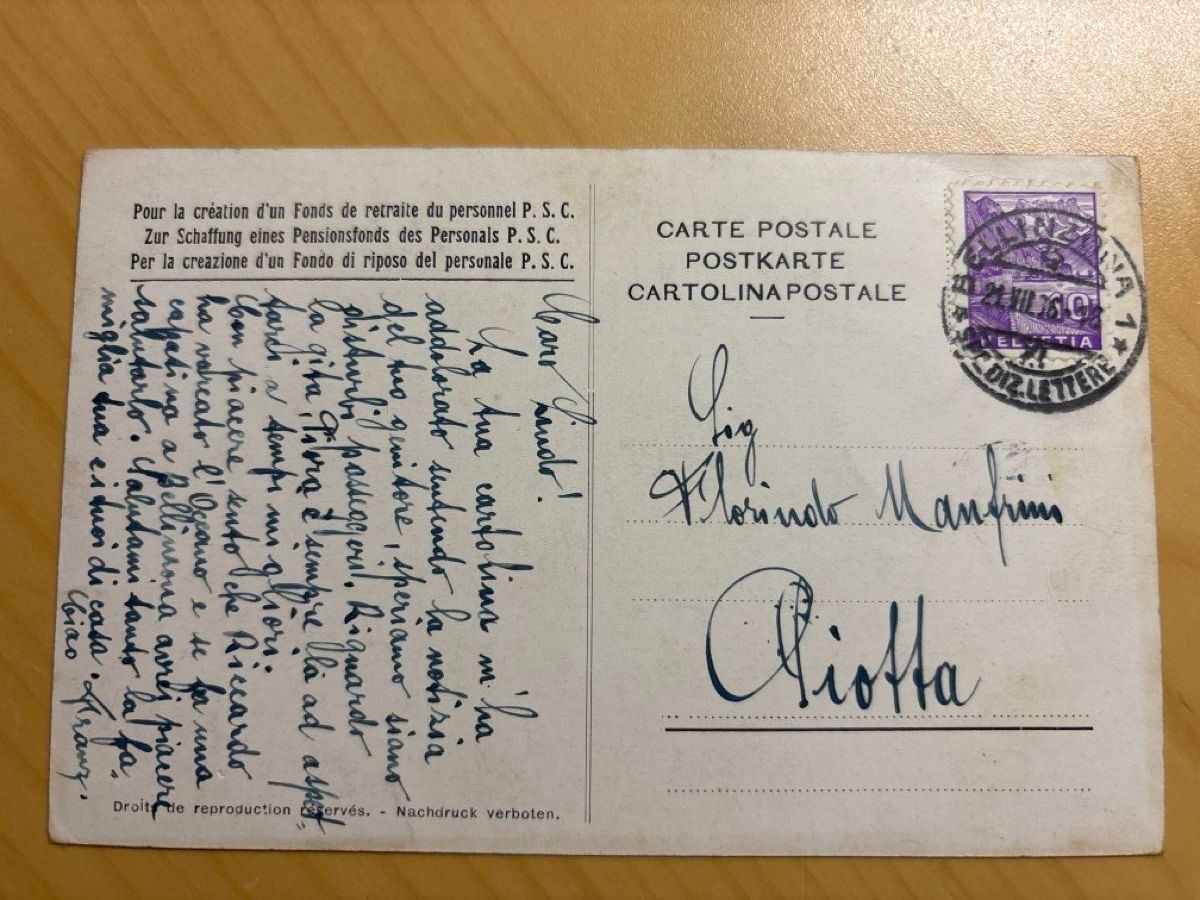 Pour la création d'un Fonds de retraite du personnel P. S. C.
Zur Schaffung eines Pensionsfonds des Personals P. S. C.
Per la creazione d'un Fondo di riposo del personale P. S. C.
Caro Lindo!
La tua cartolina m'ha
addolorato sentendo la notizia
del tuo genitore, speriamo siano
disturbi passaggeri. Riguardo
la gita, Flora è sempre llà ad aspet=
tardi a tempi migliori.
Con piacere sento che Riccardo
ha varcato l'Oceano e se fa una
capatina a Bellinzona avrei piacere
salutarlo. Salutami tanto la fa=
miglia tua e i tuoi di casa.
Ciao Franz.
Droits de reproduction réservés. - Nachdruck verboten.
CARTE POSTALE
POSTKARTE
CARTOLINA POSTALE
HELVETIA
BELLINZONA 1
SPEDIZ. LETTERE
Sig
Florindo Manfrini
Piotta